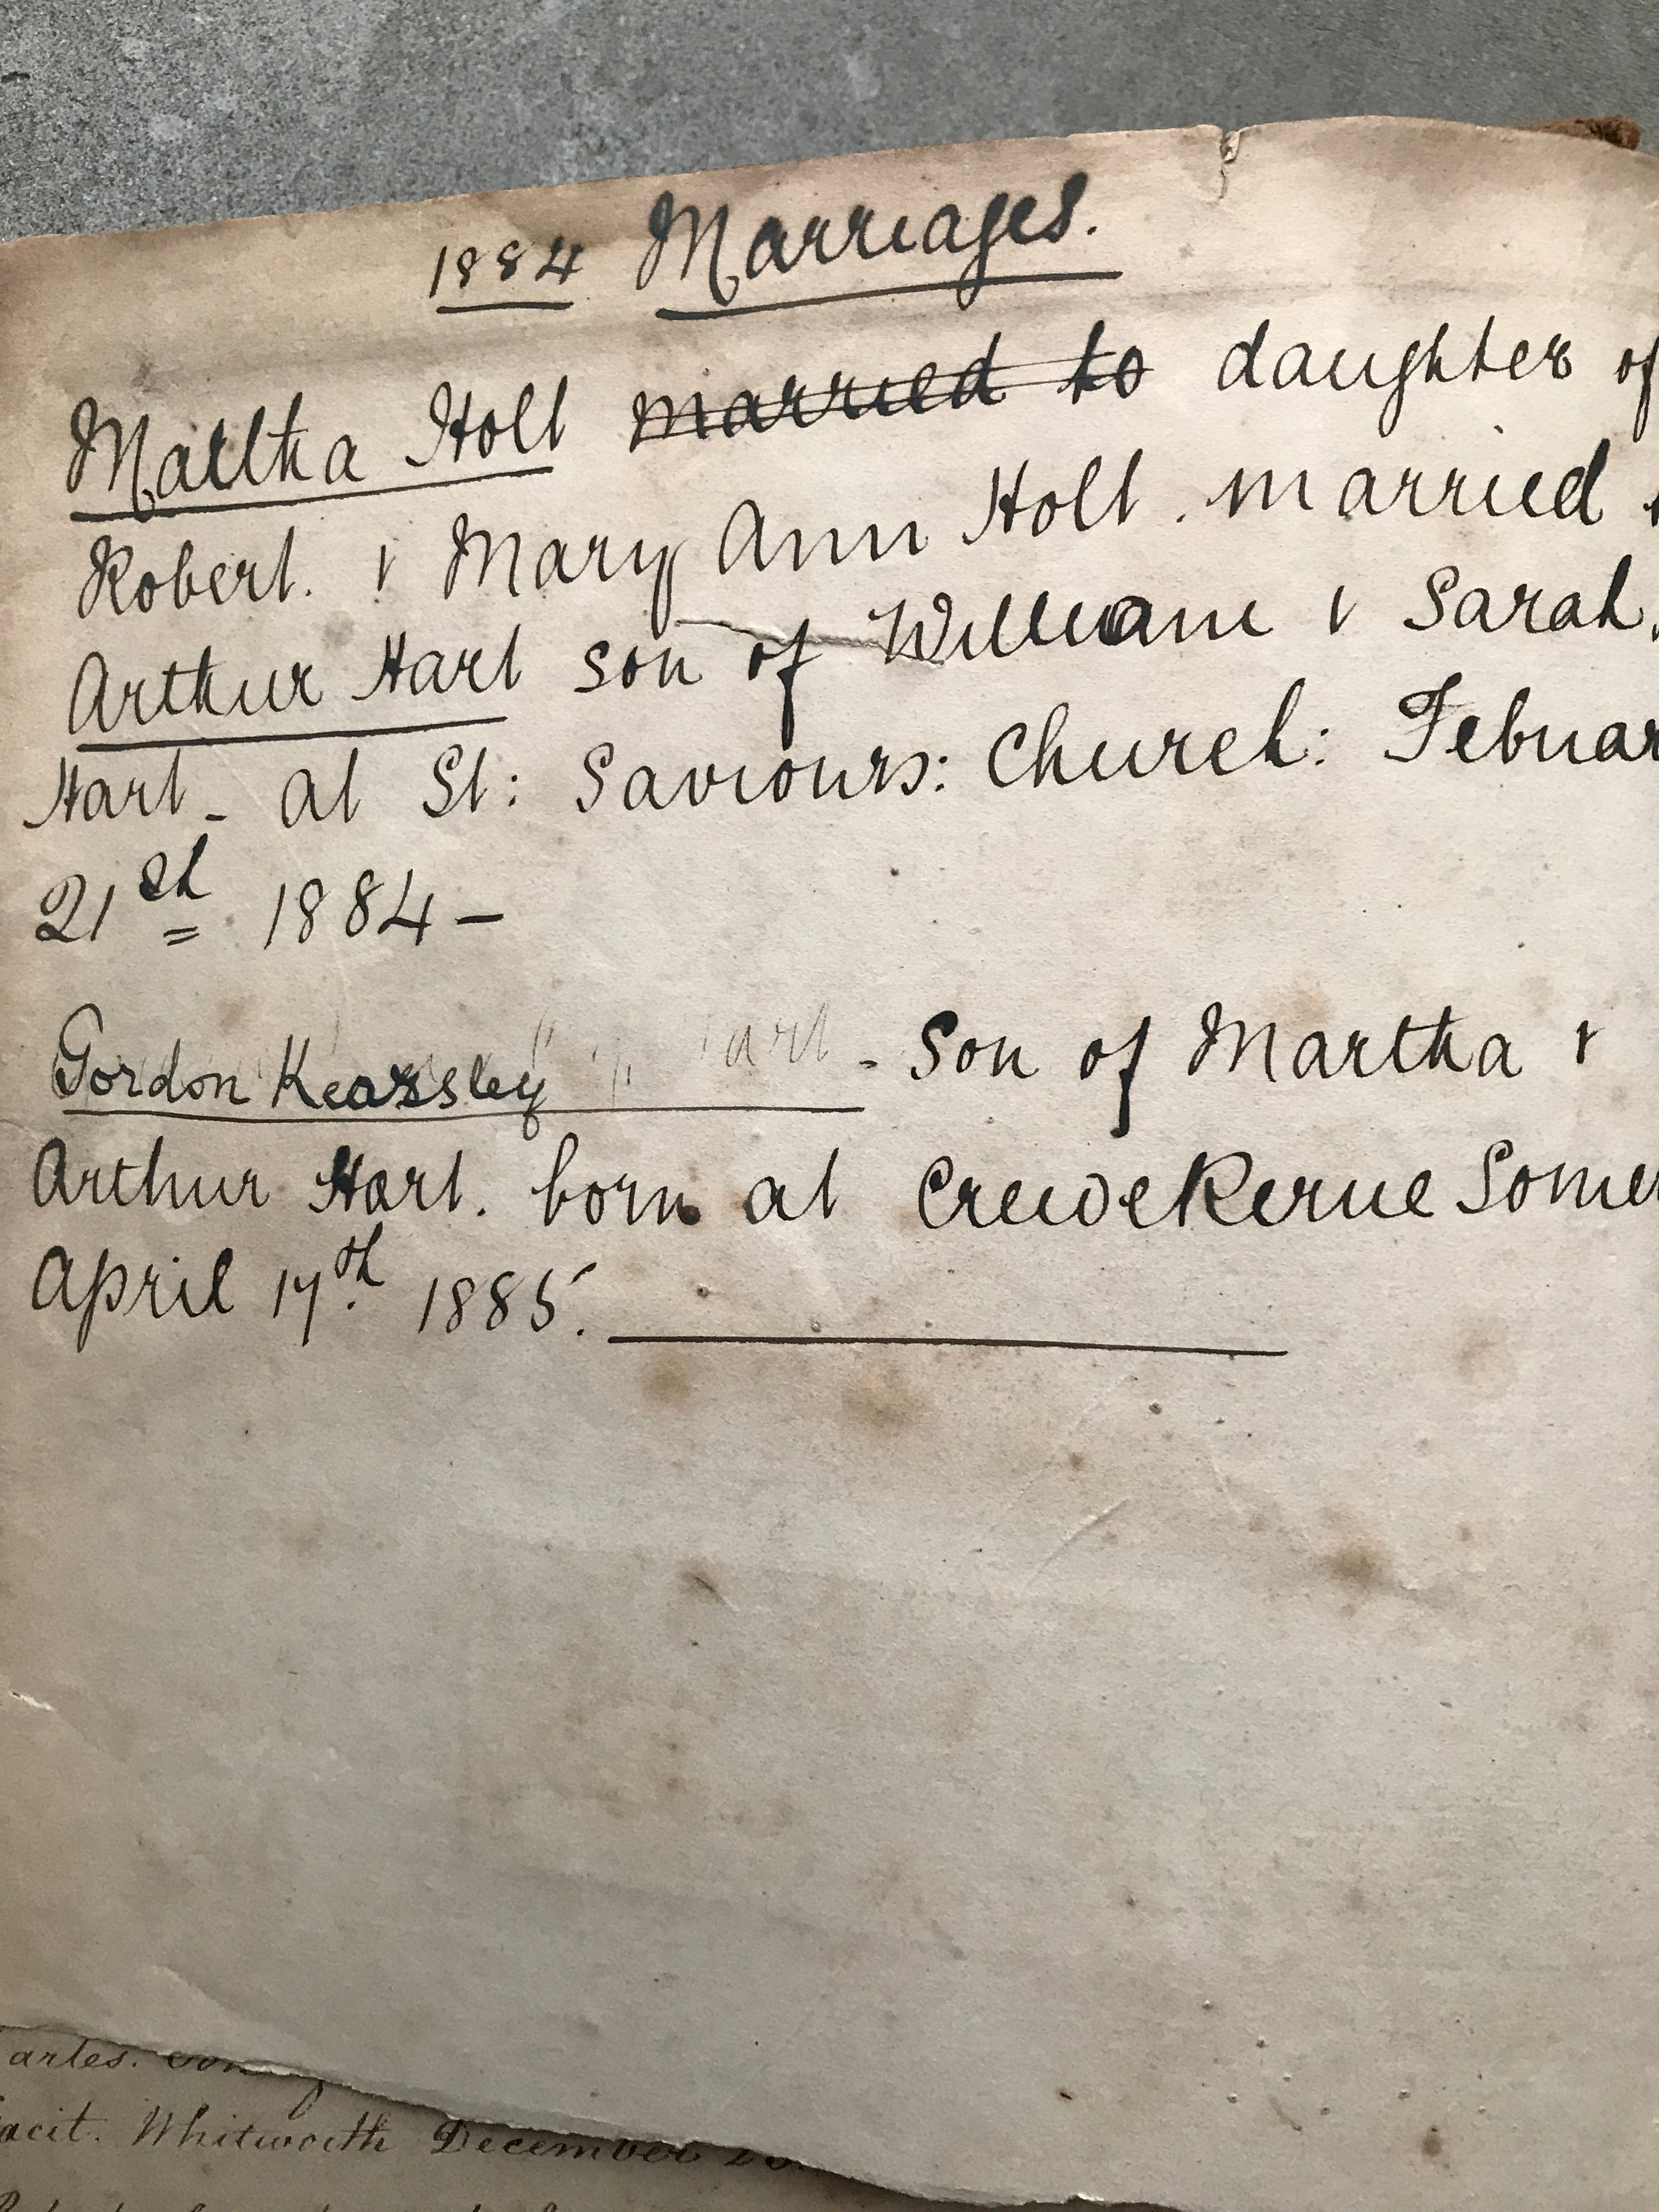 1884 Marriages.
Martha Holt married to daughter of
Robert. & Mary Ann Holt. married
Arthur Hart son of William & Sarah.
Hart - at St: Saviours: Church: Febuar
21st 1884 -
Gordon Kearsley art - Son of Martha &
Arthur Hart. born at CreweKerne Somer
April 17th. 1885.
artes. son
acit. Whitworth December